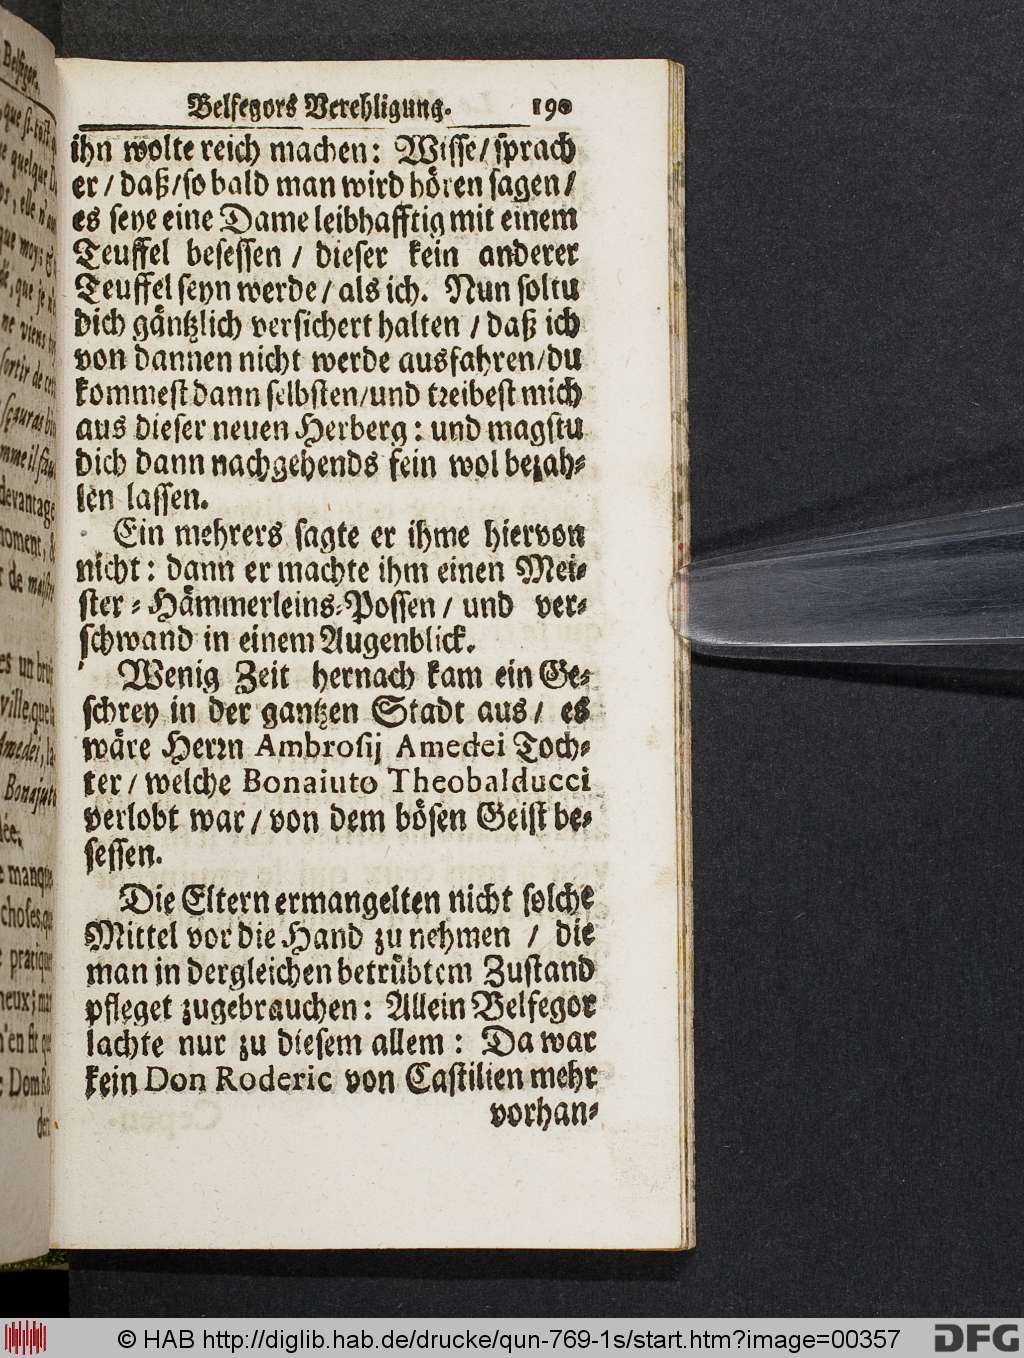 Belfegors Verehligung. 190
ihn wolte reich machen: Wisse/ sprach
er / daß/so bald man wird hören sagen/
es seye eine Dame leibhafftig mit einem
Teuffel besessen / dieser kein anderer
Teuffel seyn werde / als ich. Nun soltu
dich gäntzlich versichert halten / daß ich
von dannen nicht werde ausfahren/du
kommest dann selbsten/und treibest mich
aus dieser neuen Herberg: und magstu
dich dann nachgehends fein wol bezah-
len lassen.
Ein mehrers sagte er ihme hiervon
nicht: dann er machte ihm einen Mei-
ster-Hämmerleins-Possen / und ver-
schwand in einem Augenblick.
Wenig Zeit hernach kam ein Ge-
schrey in der gantzen Stadt aus / es
wäre Herrn Ambrosij Amedei Toch-
ter / welche Bonaiuto Theobalducci
verlobt war / von dem bösen Geist be-
sessen.
Die Eltern ermangelten nicht solche
Mittel vor die Hand zu nehmen / die
man in dergleichen betrübtem Zustand
pfleget zugebrauchen: Allein Belfegor
lachte nur zu diesem allem: Da war
kein Don Roderic von Castilien mehr
vorhan-
Belfegor.
quelque
elle
que moys
que je
ne viens
sortir de
sçauras
devantage
moment, &
de
un bruit
ville, que
Amedei,
Bonajuto
manque
choses,
pratique
n'en fit que
Dom Ro
den
© HAB http://diglib.hab.de/drucke/qun-769-1s/start.htm?image=00357
DFG